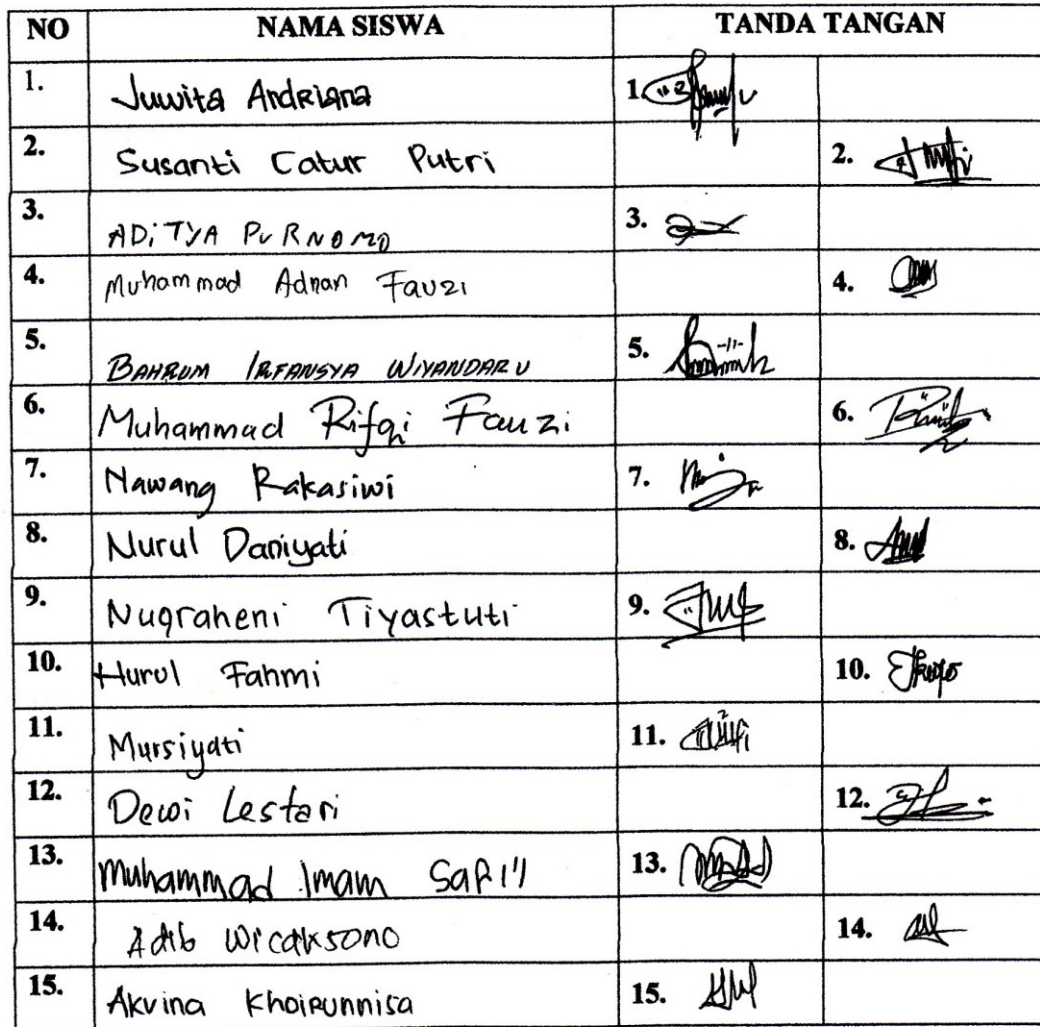 NO NAMA SISWA TANDA TANGAN
1. Juwita Andriana 1.
2. Susanti Catur Putri 2.
3. ADiTYA PURNOMO 3.
4. Muhammad Adnan Fauzi 4.
5. BAHRUM IRFANSYA WIYANDARU 5.
6. Muhammad Rifqi Fauzi 6.
7. Nawang Rakasiwi 7.
8. Nurul Daniyati 8.
9. Nugraheni Tiyastuti 9.
10. Hurul Fahmi 10.
11. Mursiyati 11.
12. Dewi Lestari 12.
13. Muhammad Imam SaFi'i 13.
14. Adib Wicaksono 14.
15. Akvina Khoirunnisa 15.